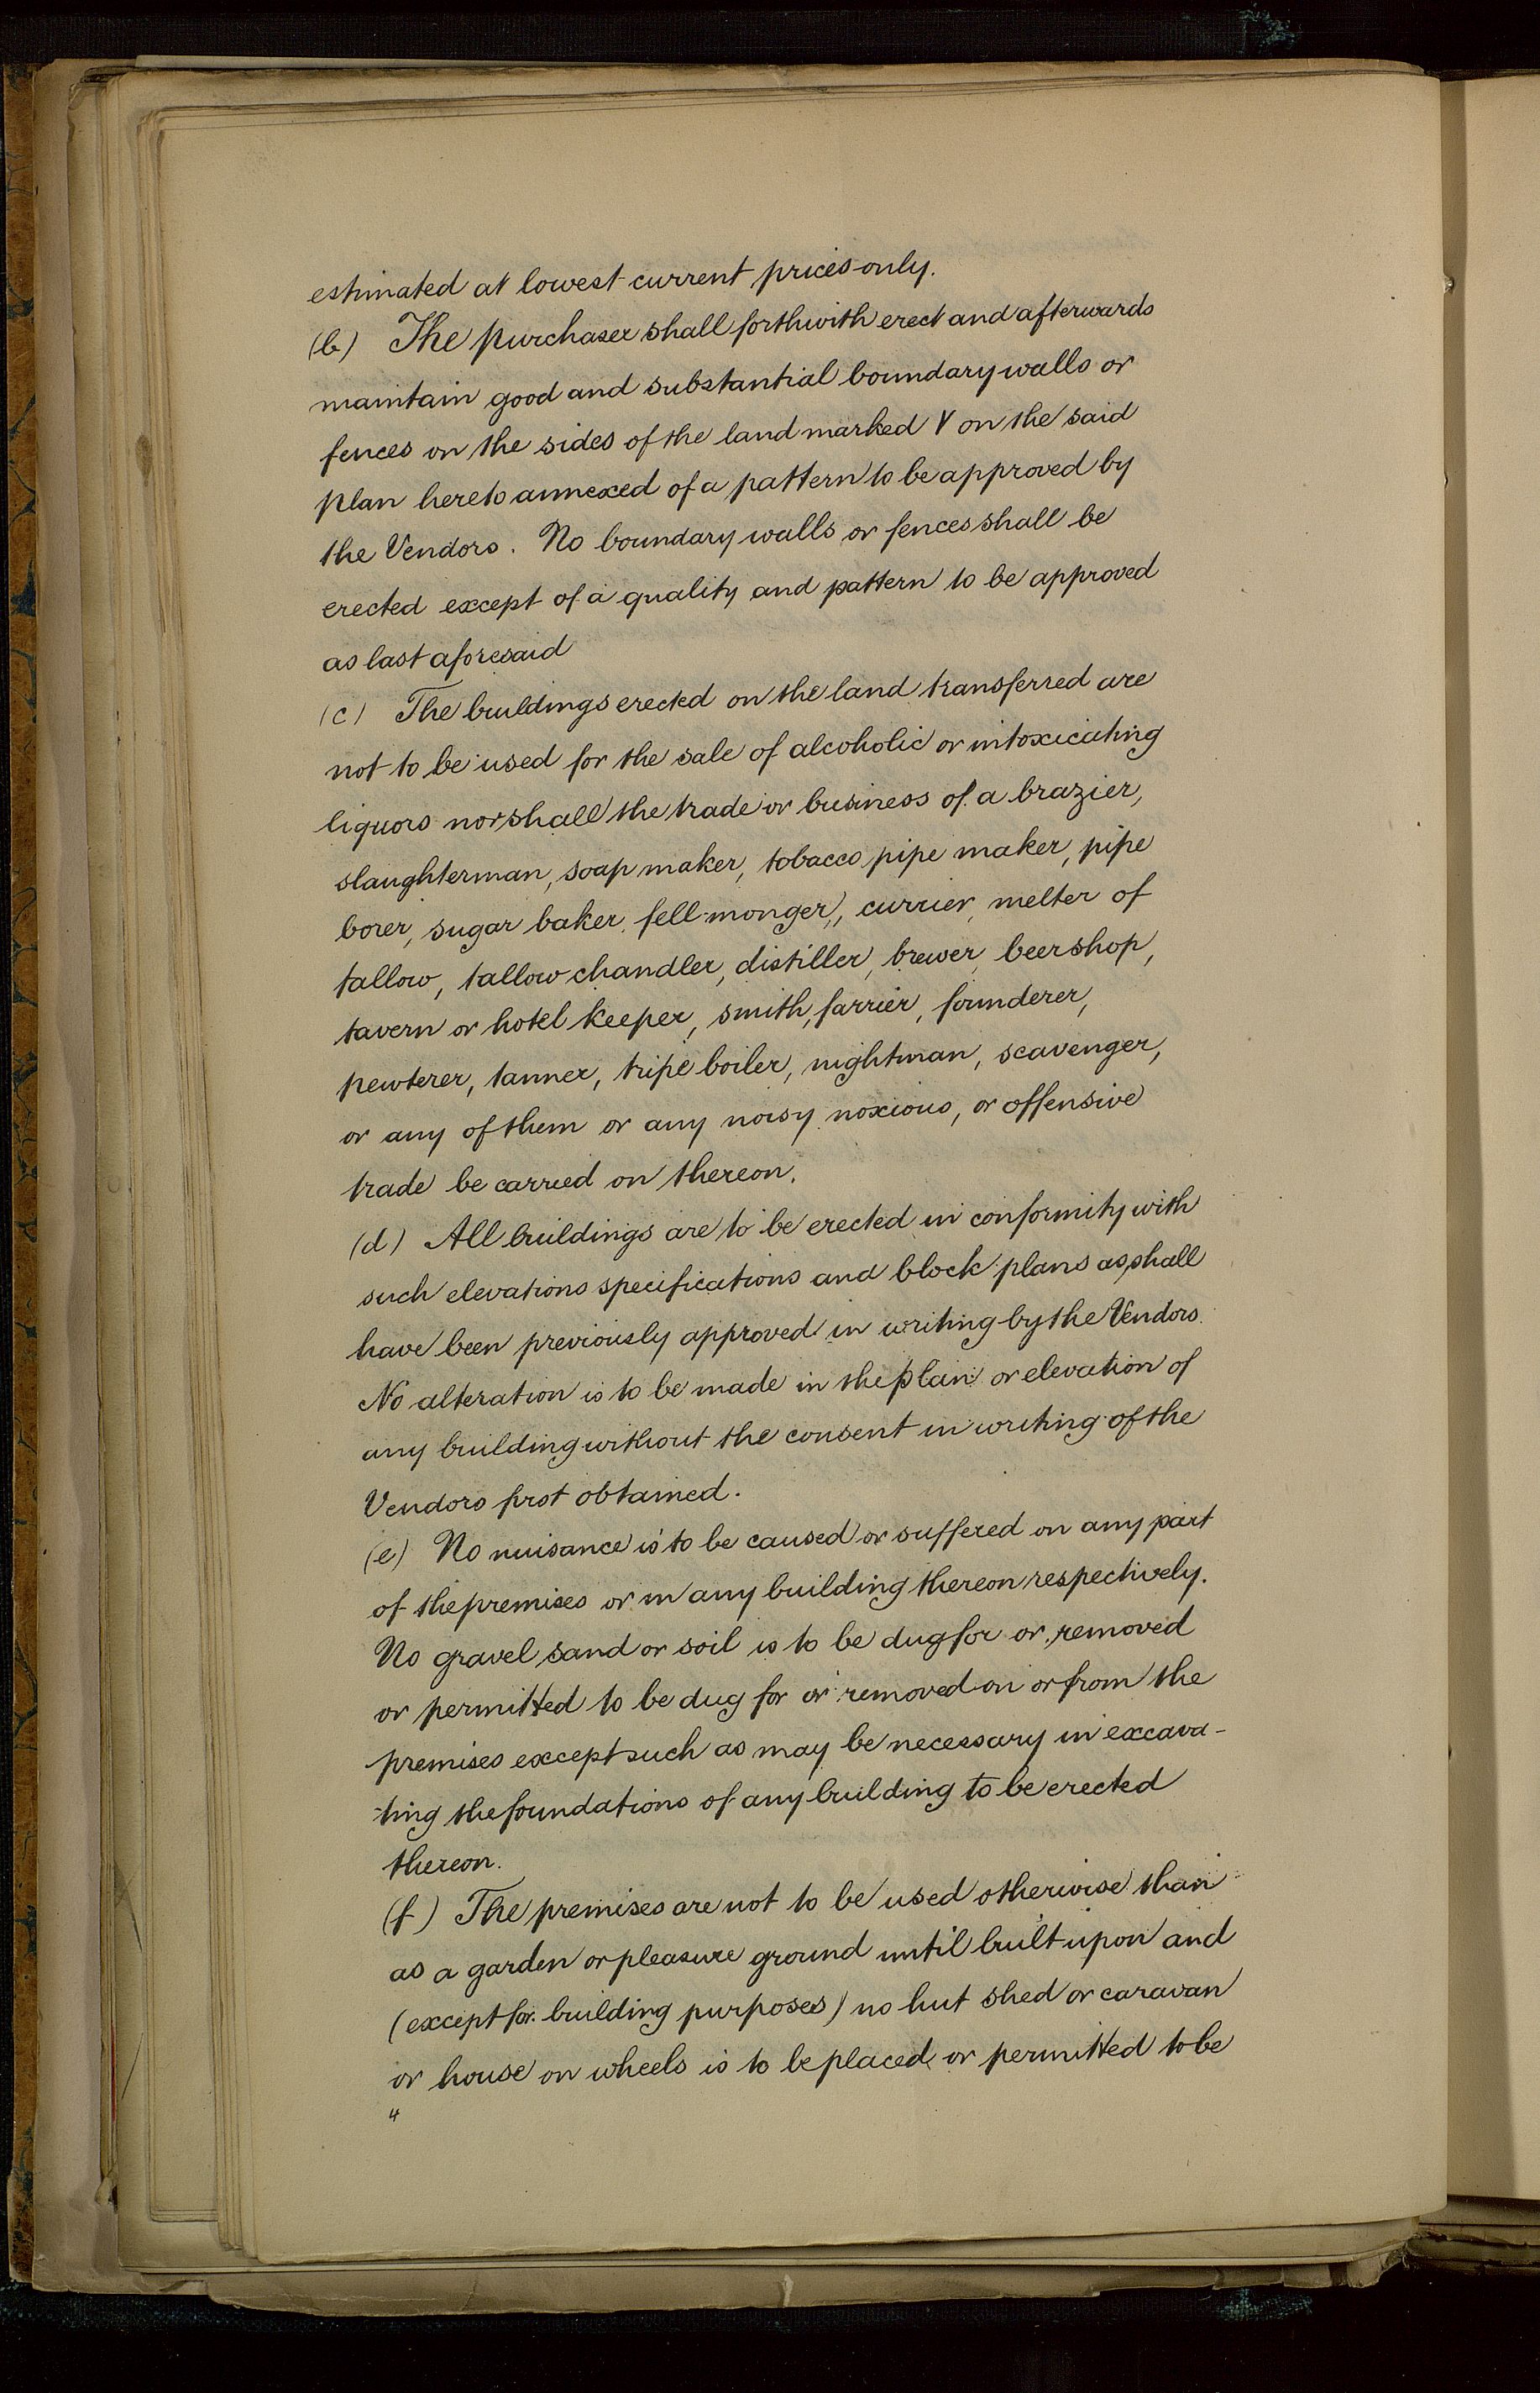 estimated at lowest current prices only.
(b) The purchaser shall forthwith erect and afterwards
maintain good and substantial boundary walls or
fences on the sides of the land marked V on the said
plan hereto annexed of a pattern to be approved by
the Vendors. No boundary walls or fences shall be
erected except of a quality and pattern to be approved
as last aforesaid
(c) The buildings erected on the land transferred are
not to be used for the sale of alcoholic or intoxicating
liquors nor shall the trade or business of a brazier,
slaughterman, soap maker, tobacco pipe maker, pipe
borer, sugar baker, fell-monger, currier, melter of
tallow, tallow chandler, distiller, brewer, beershop,
tavern or hotel keeper, smith, farrier, founderer,
pewterer, tanner, tripe boiler, nightman, scavenger,
or any of them or any noisy noxious, or offensive
trade be carried on thereon.
(d) All buildings are to be erected in conformity with
such elevations specifications and block plans as shall
have been previously approved in writing by the Vendors.
No alteration is to be made in the plan or elevation of
any building without the consent in writing of the
Vendors first obtained.
(e) No nuisance is to be caused or suffered on any part
of the premises or in any building thereon respectively.
No gravel sand or soil is to be dug for or removed
or permitted to be dug for or removed on or from the
premises except such as may be necessary in excava-
-ting the foundations of any building to be erected
thereon.
(f) The premises are not to be used otherwise than
as a garden or pleasure ground until built upon and
(except for building purposes) no hut shed or caravan
or house on wheels is to be placed or permitted to be
4